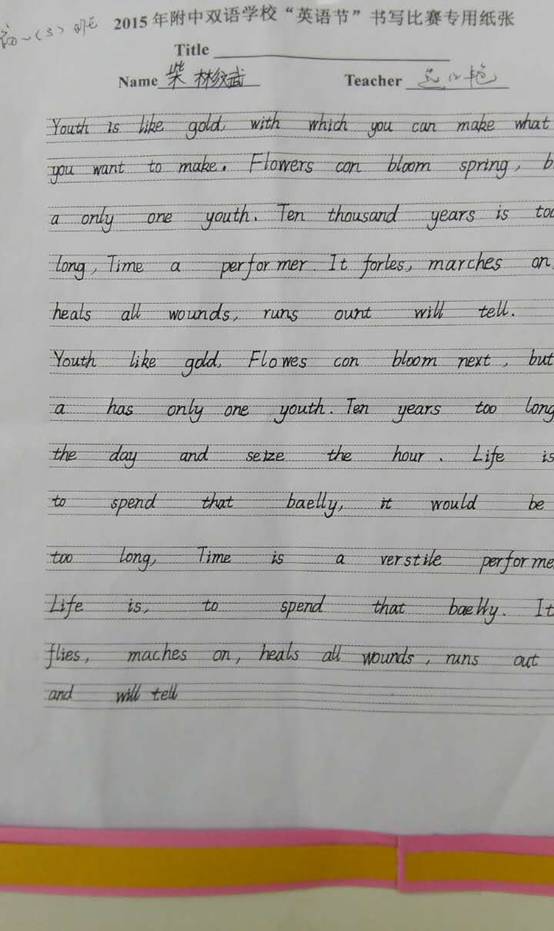 2015年附中双语学校“英语节”书写比赛专用纸张
(3) 班
Title
Name 柴林纹武 Teacher
Youth is like gold, with which you can make what
you want to make. Flowers con bloom spring, b
a only one youth. Ten thousand years is too
long, Time a performer. It forles, marches on
heals all wounds, runs ount will tell.
Youth like gold, Flowes con bloom next, but
a has only one youth. Ten years too long
the day and seize the hour. Life is
to spend that baelly, it would be
too long, Time is a verstile performe
Life is, to spend that baelly. It
flies, maches on, heals all wounds, runs out
and will tell